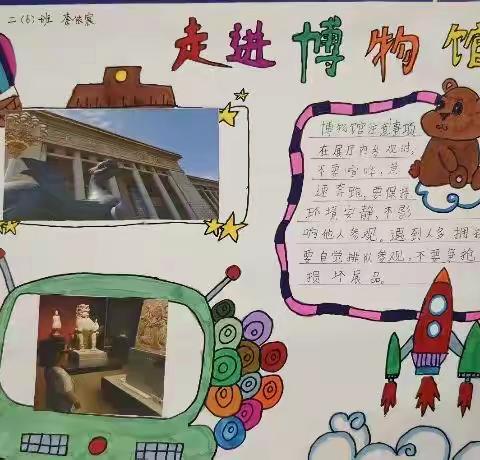 二(6)班
走进博物馆
博物馆注意事项
在展厅内参观时,
不要喧哗,急
速奔跑,要保持
环境安静,不影
响他人参观。遇到人多拥
要自觉排队参观,不要争抢
损坏展品。